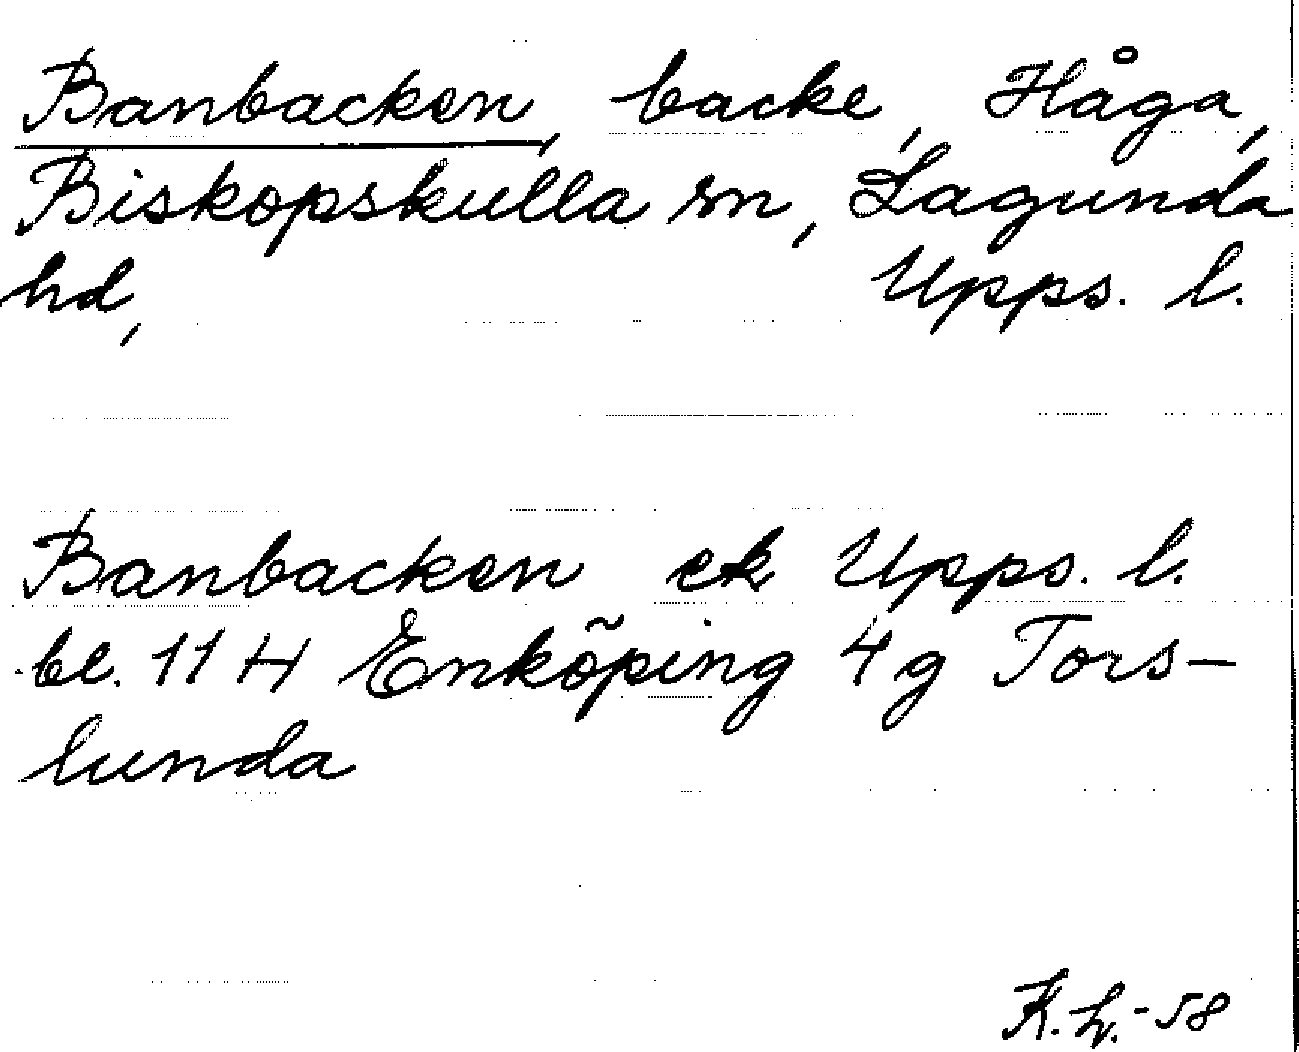 Banbacken, backe, Håga,
Biskopskulla sn, Lagunda
hd, Upps. l.
Banbacken ek Upps. l.
bl. 11 H Enköping 4 g Tors-
lunda
K.L.-58